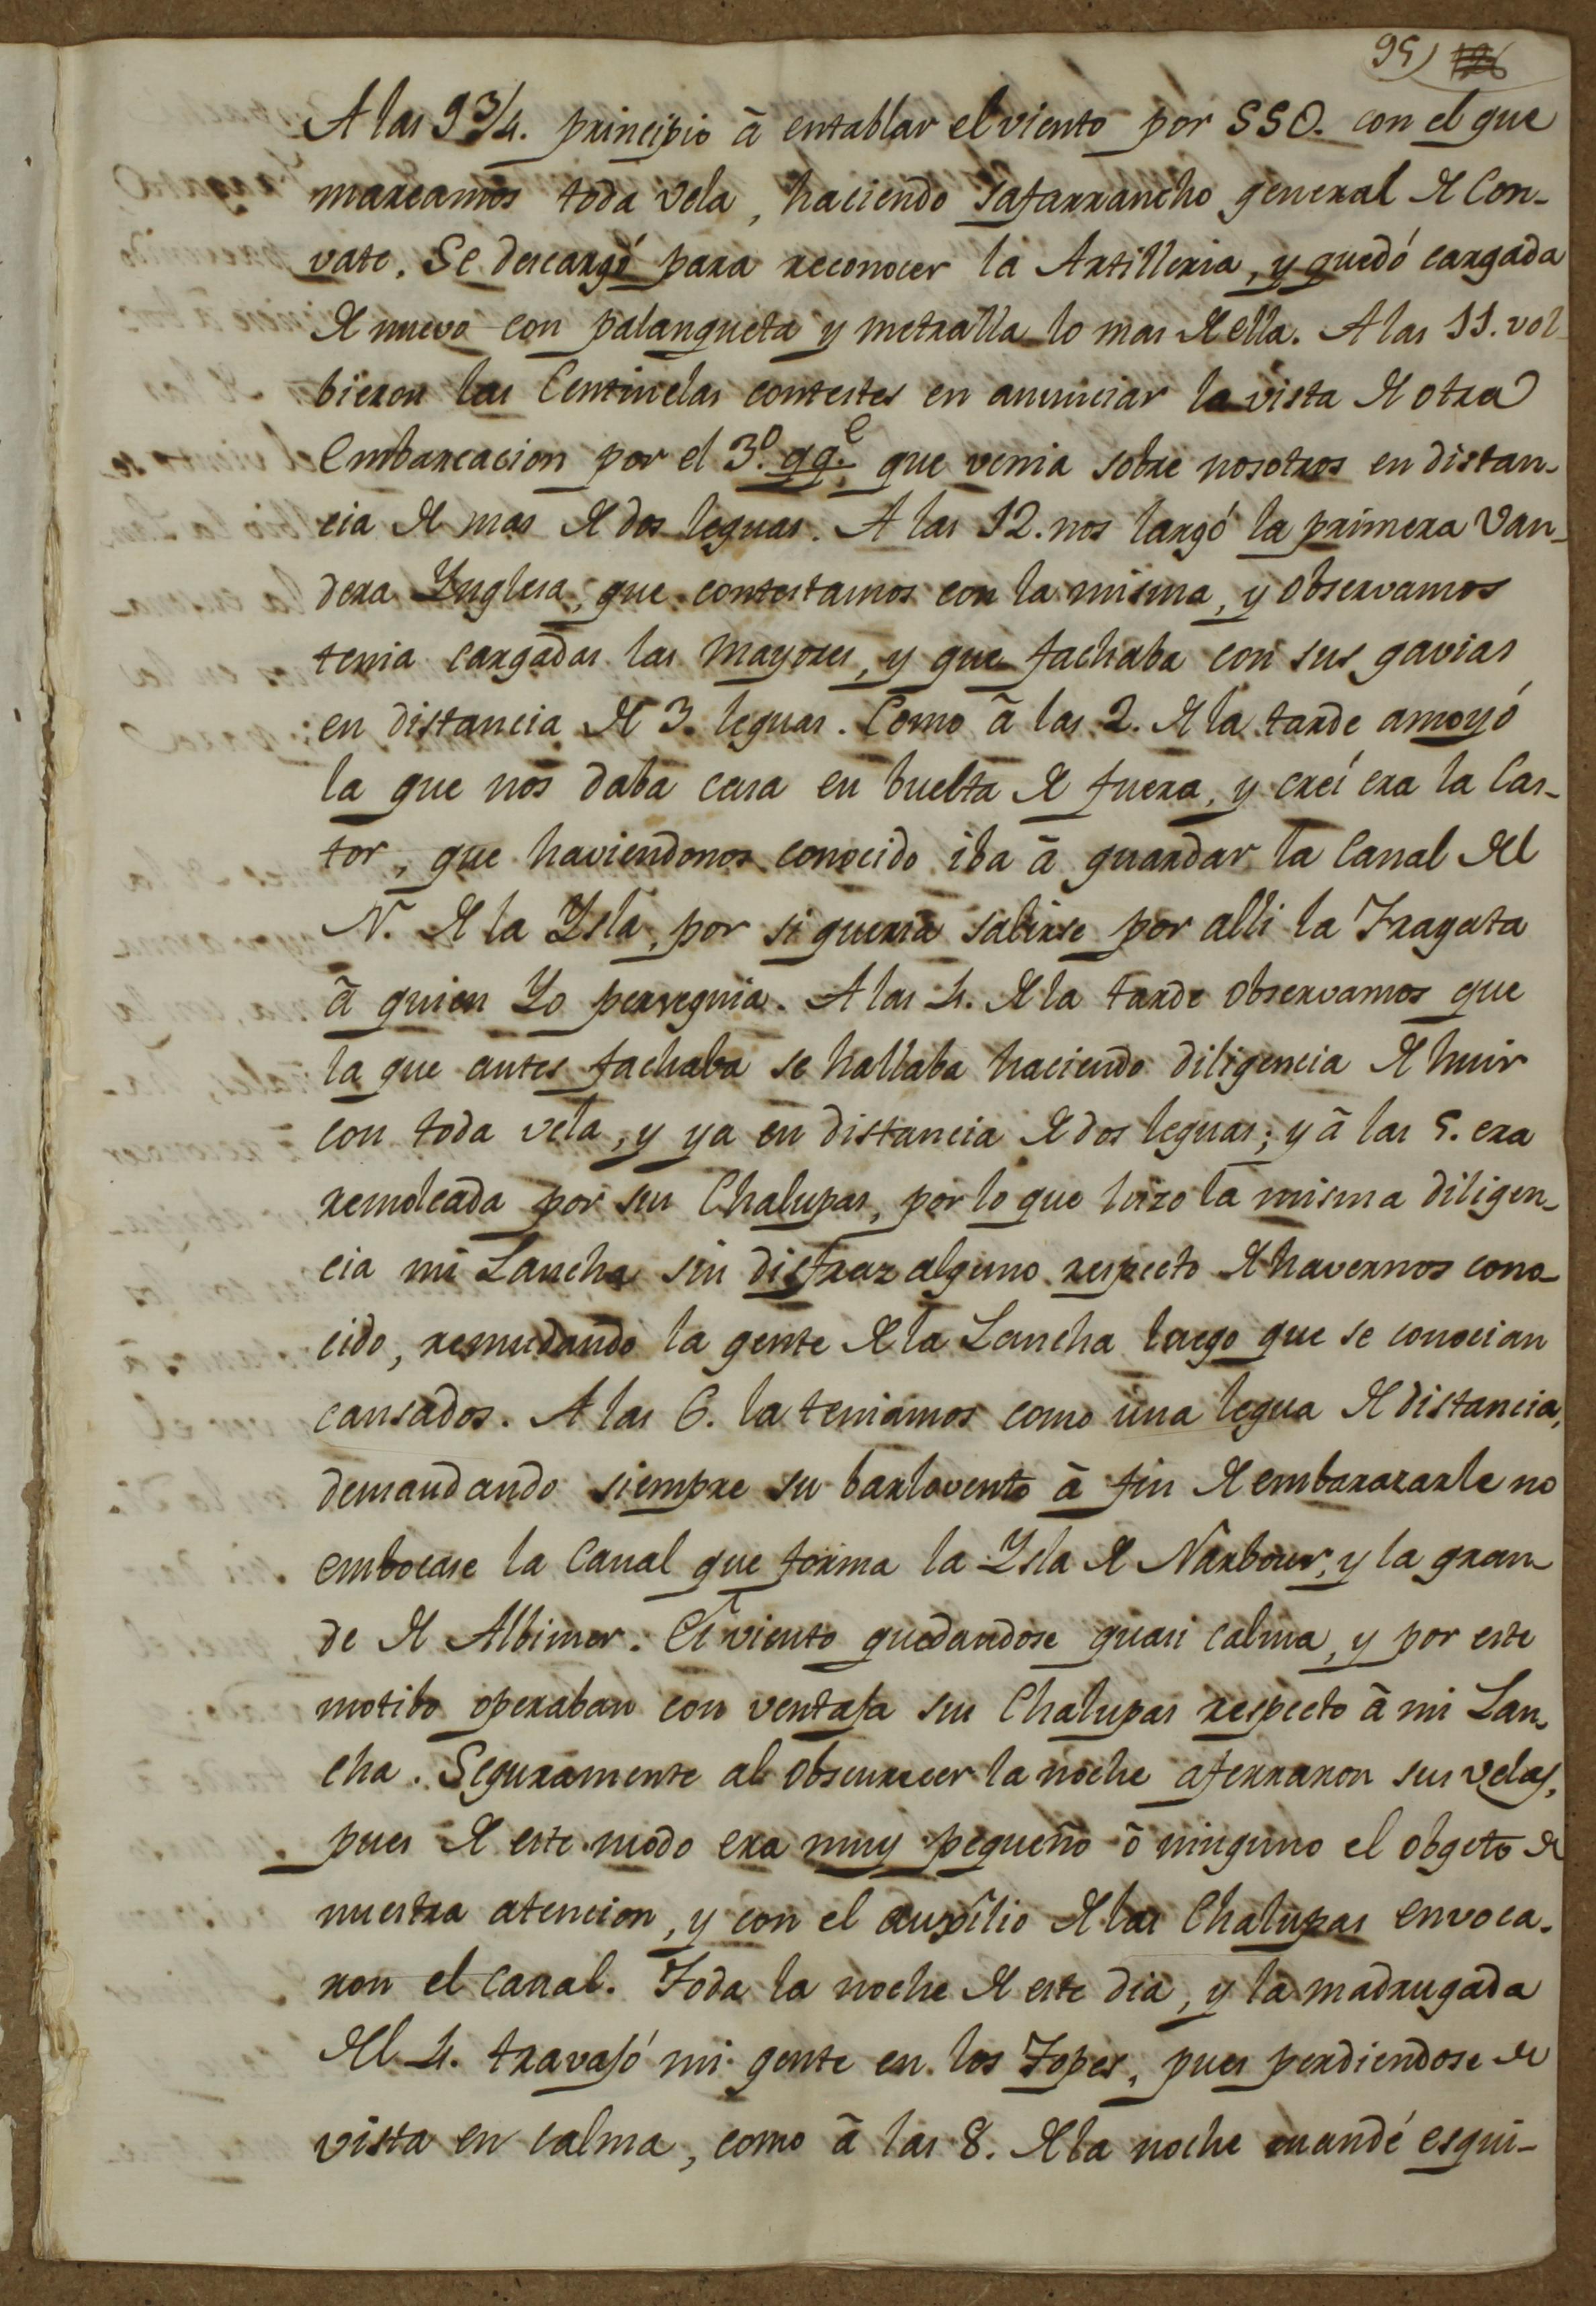 95) 126
A las 9 3/4. principio â entablar el viento por SSO. con el que
mareamos toda vela, haciendo safarrancho general de Con-
vate. Se descargó para reconocer la Artilleria, y quedó cargada
de nuevo con palanqueta y metralla lo mas de ella. A las 11. vol-
bieron las Centinelas contestes en anunciar la vista de otra
Embarcacion por el 3º. qq.e que venia sobre nosotros en distan-
cia de mas de dos leguas. A las 12. nos largó la primera Van-
dera Ynglesa, que contestamos con la misma, y observamos
tenia cargadas las mayores, y que fachaba con sus gavias
en distancia de 3. leguas. Como â las 2. de la tarde amoyó
la que nos daba casa en buelta de fuera, y creí era la Cas-
tor, que haviendonos conocido iba â guardar la Canal del
N. de la Ysla, por si queria salirse por alli la Fragata
â quien Yo perseguia. A las 4. de la tarde observamos que
la que antes fachaba se hallaba haciendo diligencia de huir
con toda vela, y ya en distancia de dos leguas; y â las 5. era
remolcada por sus Chalupas, por lo que hizo la misma diligen-
cia mi Lancha sin disfraz alguno respecto de havernos cono-
cido, remudando la gente de la Lancha luego que se conocian
cansados. A las 6. la teniamos como una legua de distancia,
demandando siempre su barlovento â fin de embarazarle no
embocase la Canal que forma la Ysla de Narbour, y la gran-
de de Albimar. El viento quedandose quasi calma, y por este
motibo operaban con ventaja sus Chalupas respecto â mi Lan-
cha. Seguramente al obscurecer la noche aferraron sus velas,
pues de este modo era muy pequeño ô ninguno el obgeto de
nuestra atencion, y con el auxîlio de las Chalupas envoca-
ron el canal. Toda la noche de este dia, y la madrugada
del 4. travajó mi gente en los Topes, pues perdiendose de
vista en calma, como â las 8. de la noche mandé esqui-